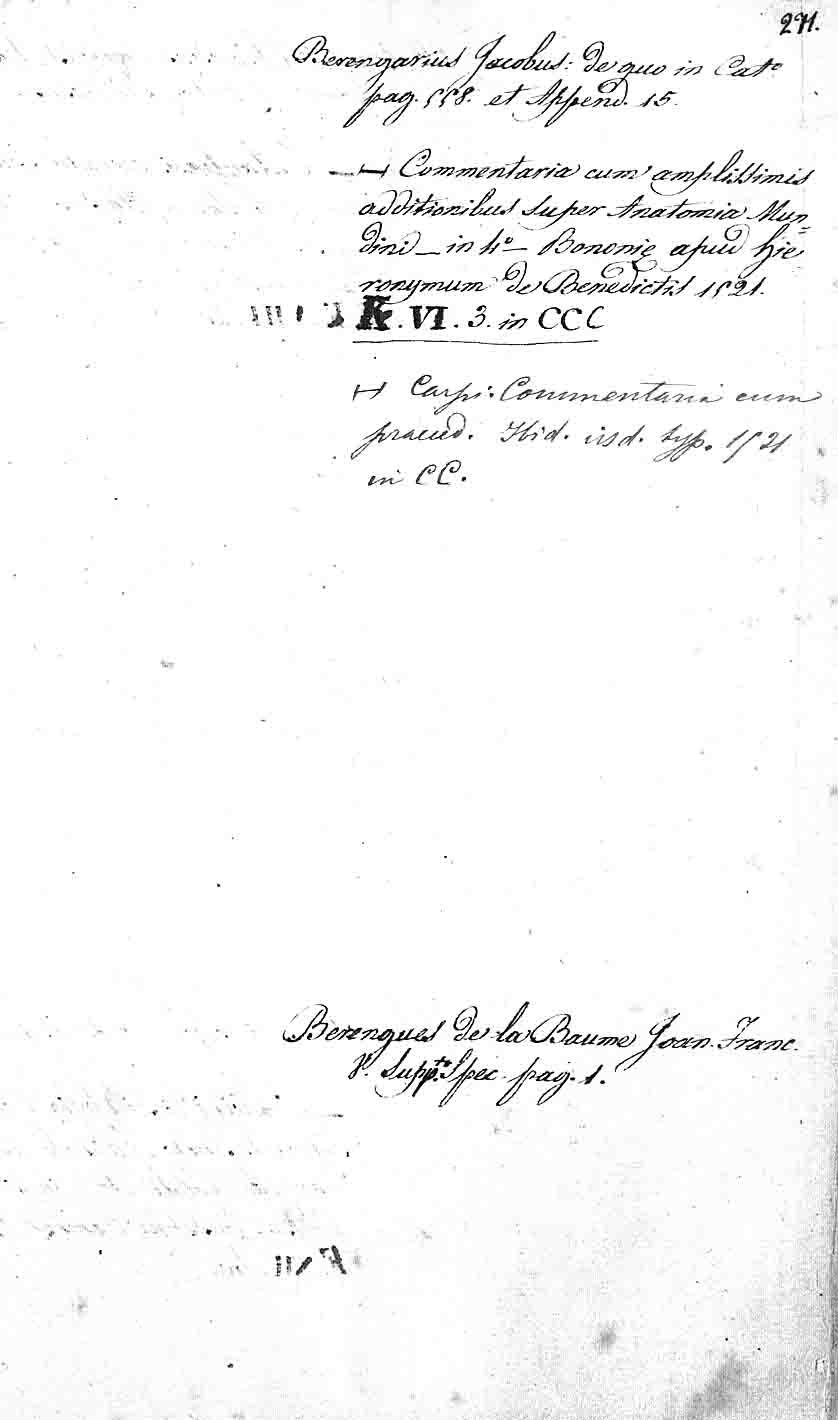 271.
Berengarius Jacobus: de quo in Cat°
pag. 558. et Append. 15.
— Commentaria cum amplissimis
additionibus super Anatomia Mun=
dini — in 4° — Bononię apud Hie
ronymum de Benedictis 1521.
K.VI.3. in CCC
— Carpi. Commentaria cum
praeced. Ibid. iisd. typ. 1521
in CC.
Berengues de la Baume Joan. Franc.
V. Supp.to Spec. pag. 1.